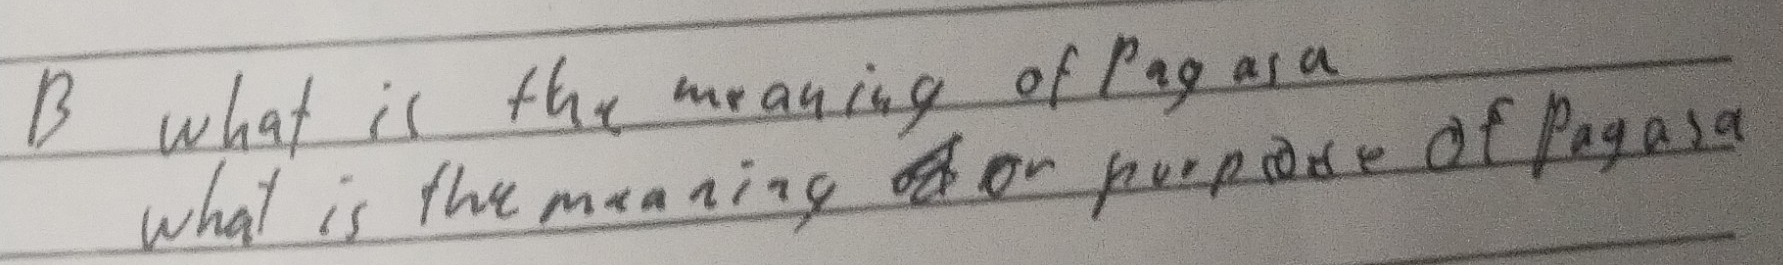 B what is the meaning of Pagasa
what is the meaning or purpose of Pagasa